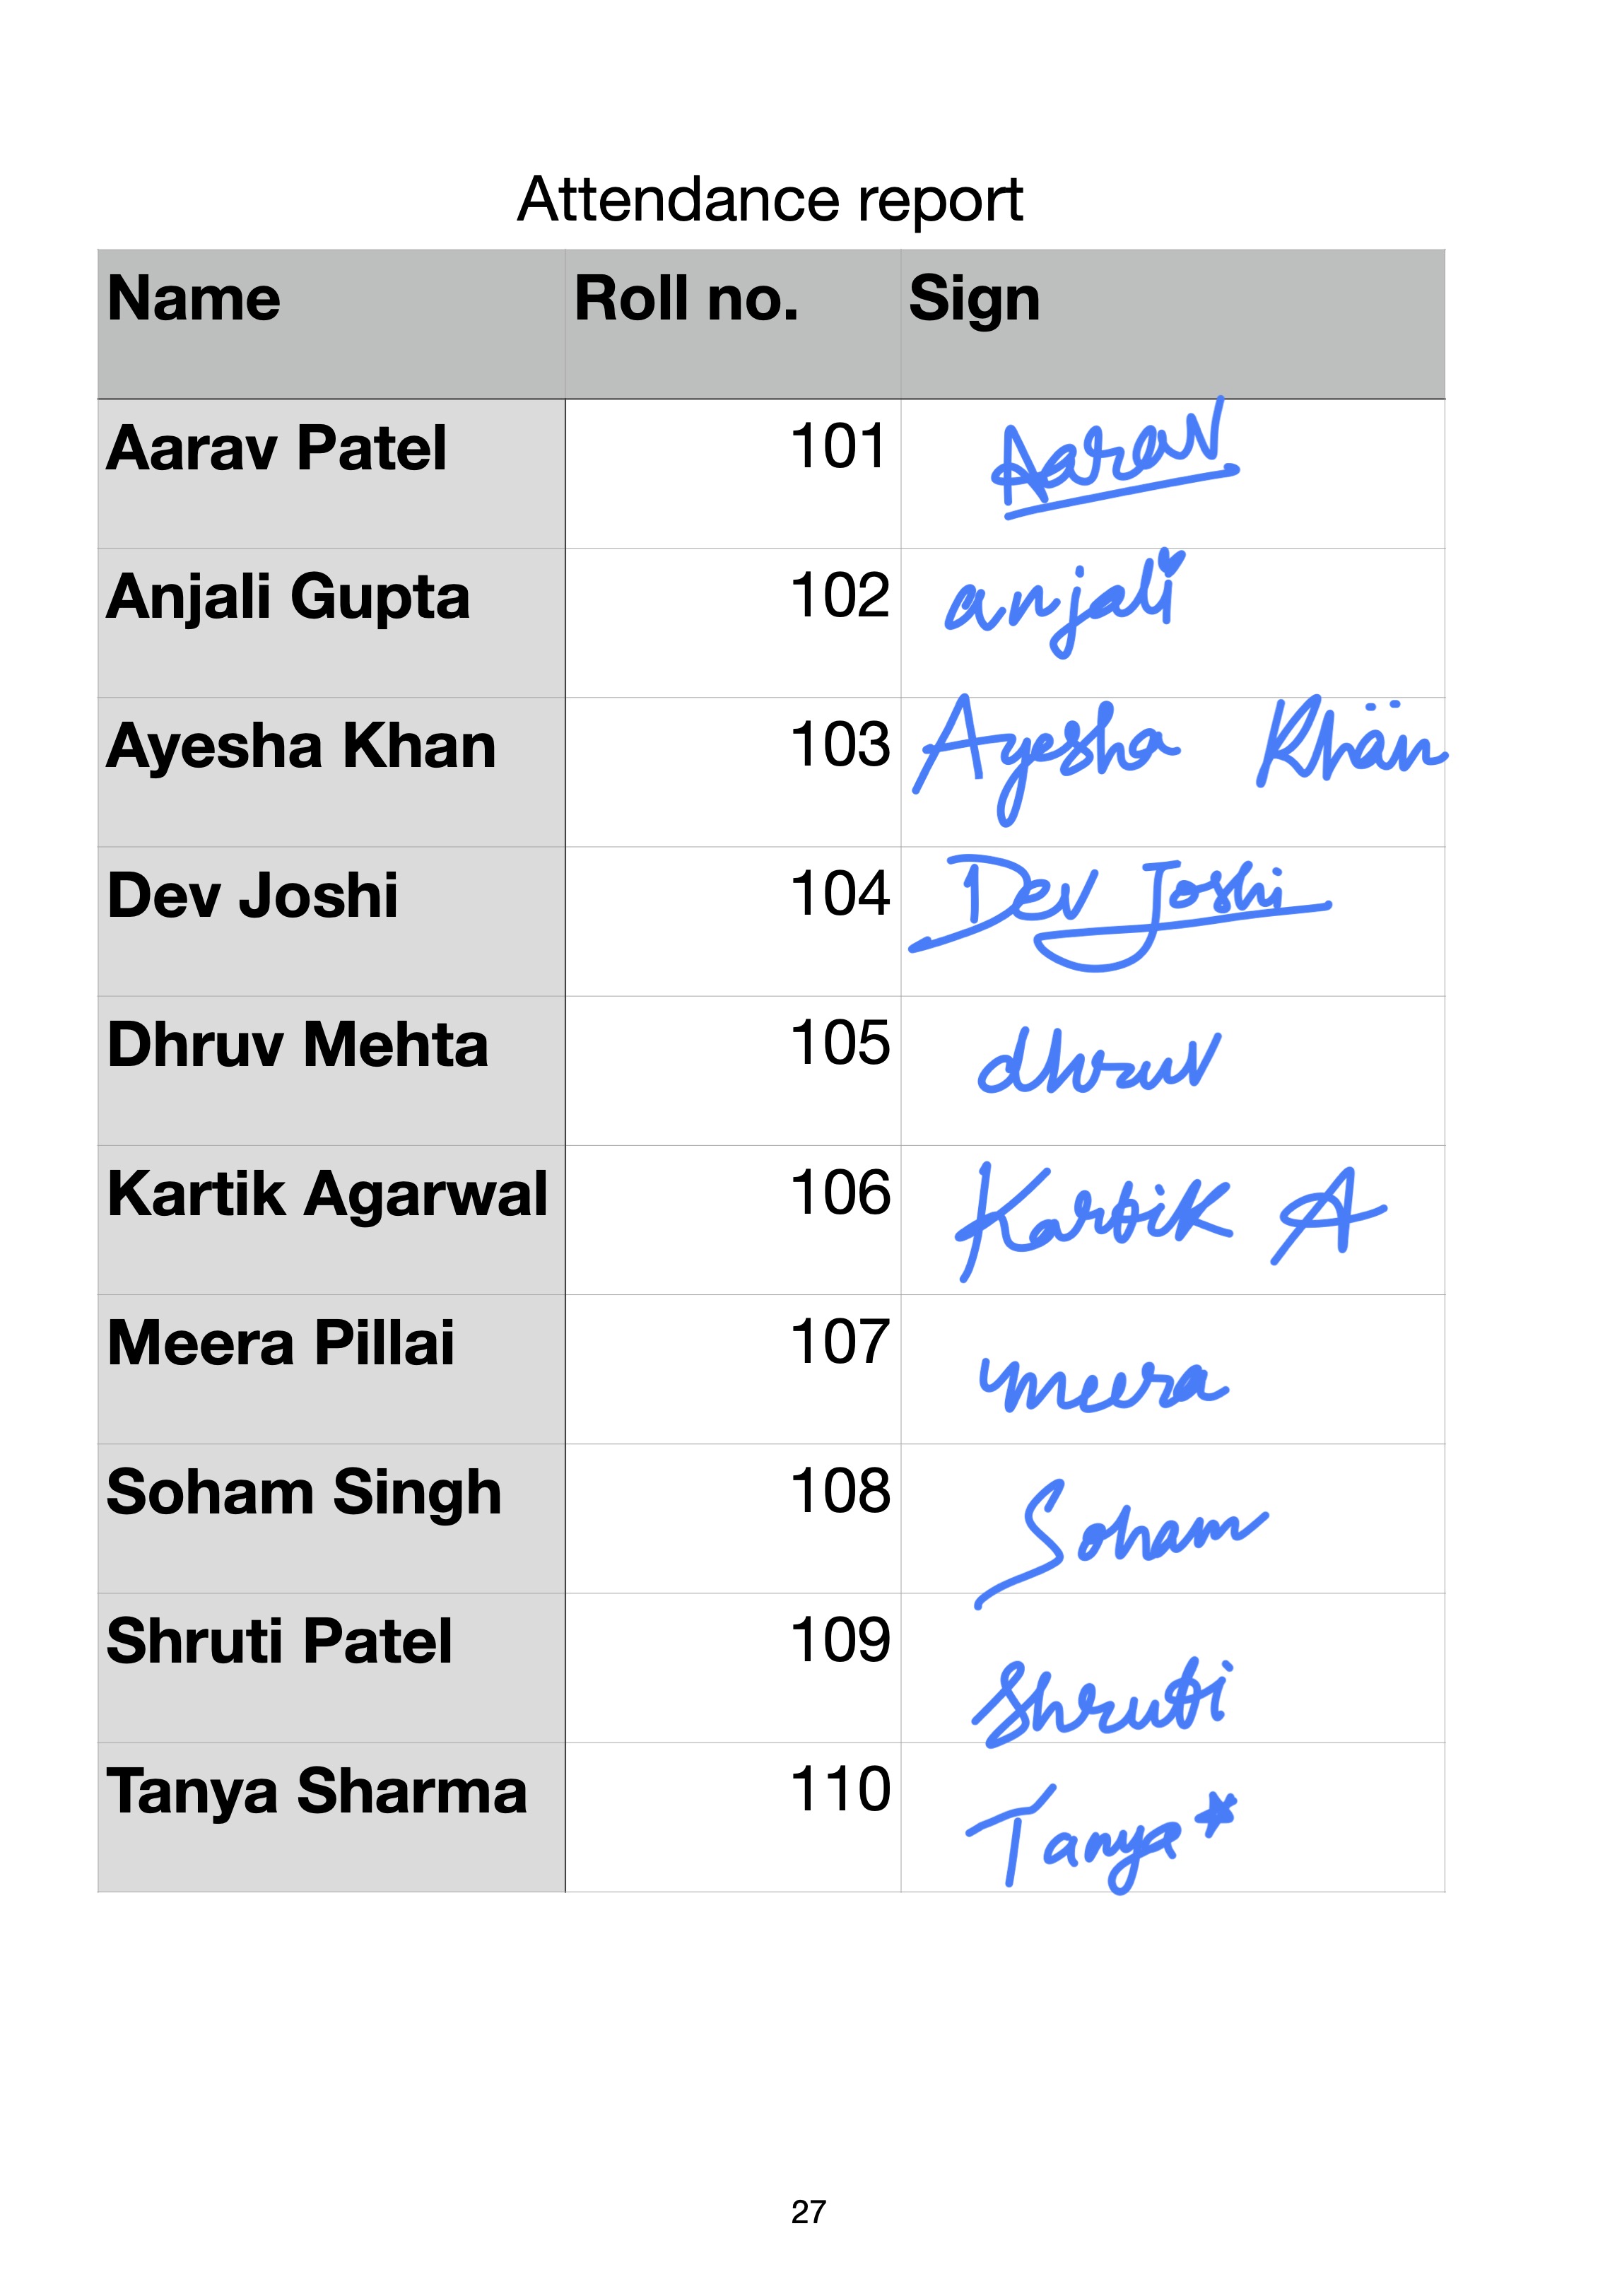 Attendance report
Name Roll no. Sign
Aarav Patel 101 Aarav
Anjali Gupta 102 anjali
Ayesha Khan 103 Ayesha Khan
Dev Joshi 104 Dev Joshi
Dhruv Mehta 105 dhruv
Kartik Agarwal 106 Kartik A
Meera Pillai 107 meera
Soham Singh 108 Soham
Shruti Patel 109 Shruti
Tanya Sharma 110 Tanya*
27